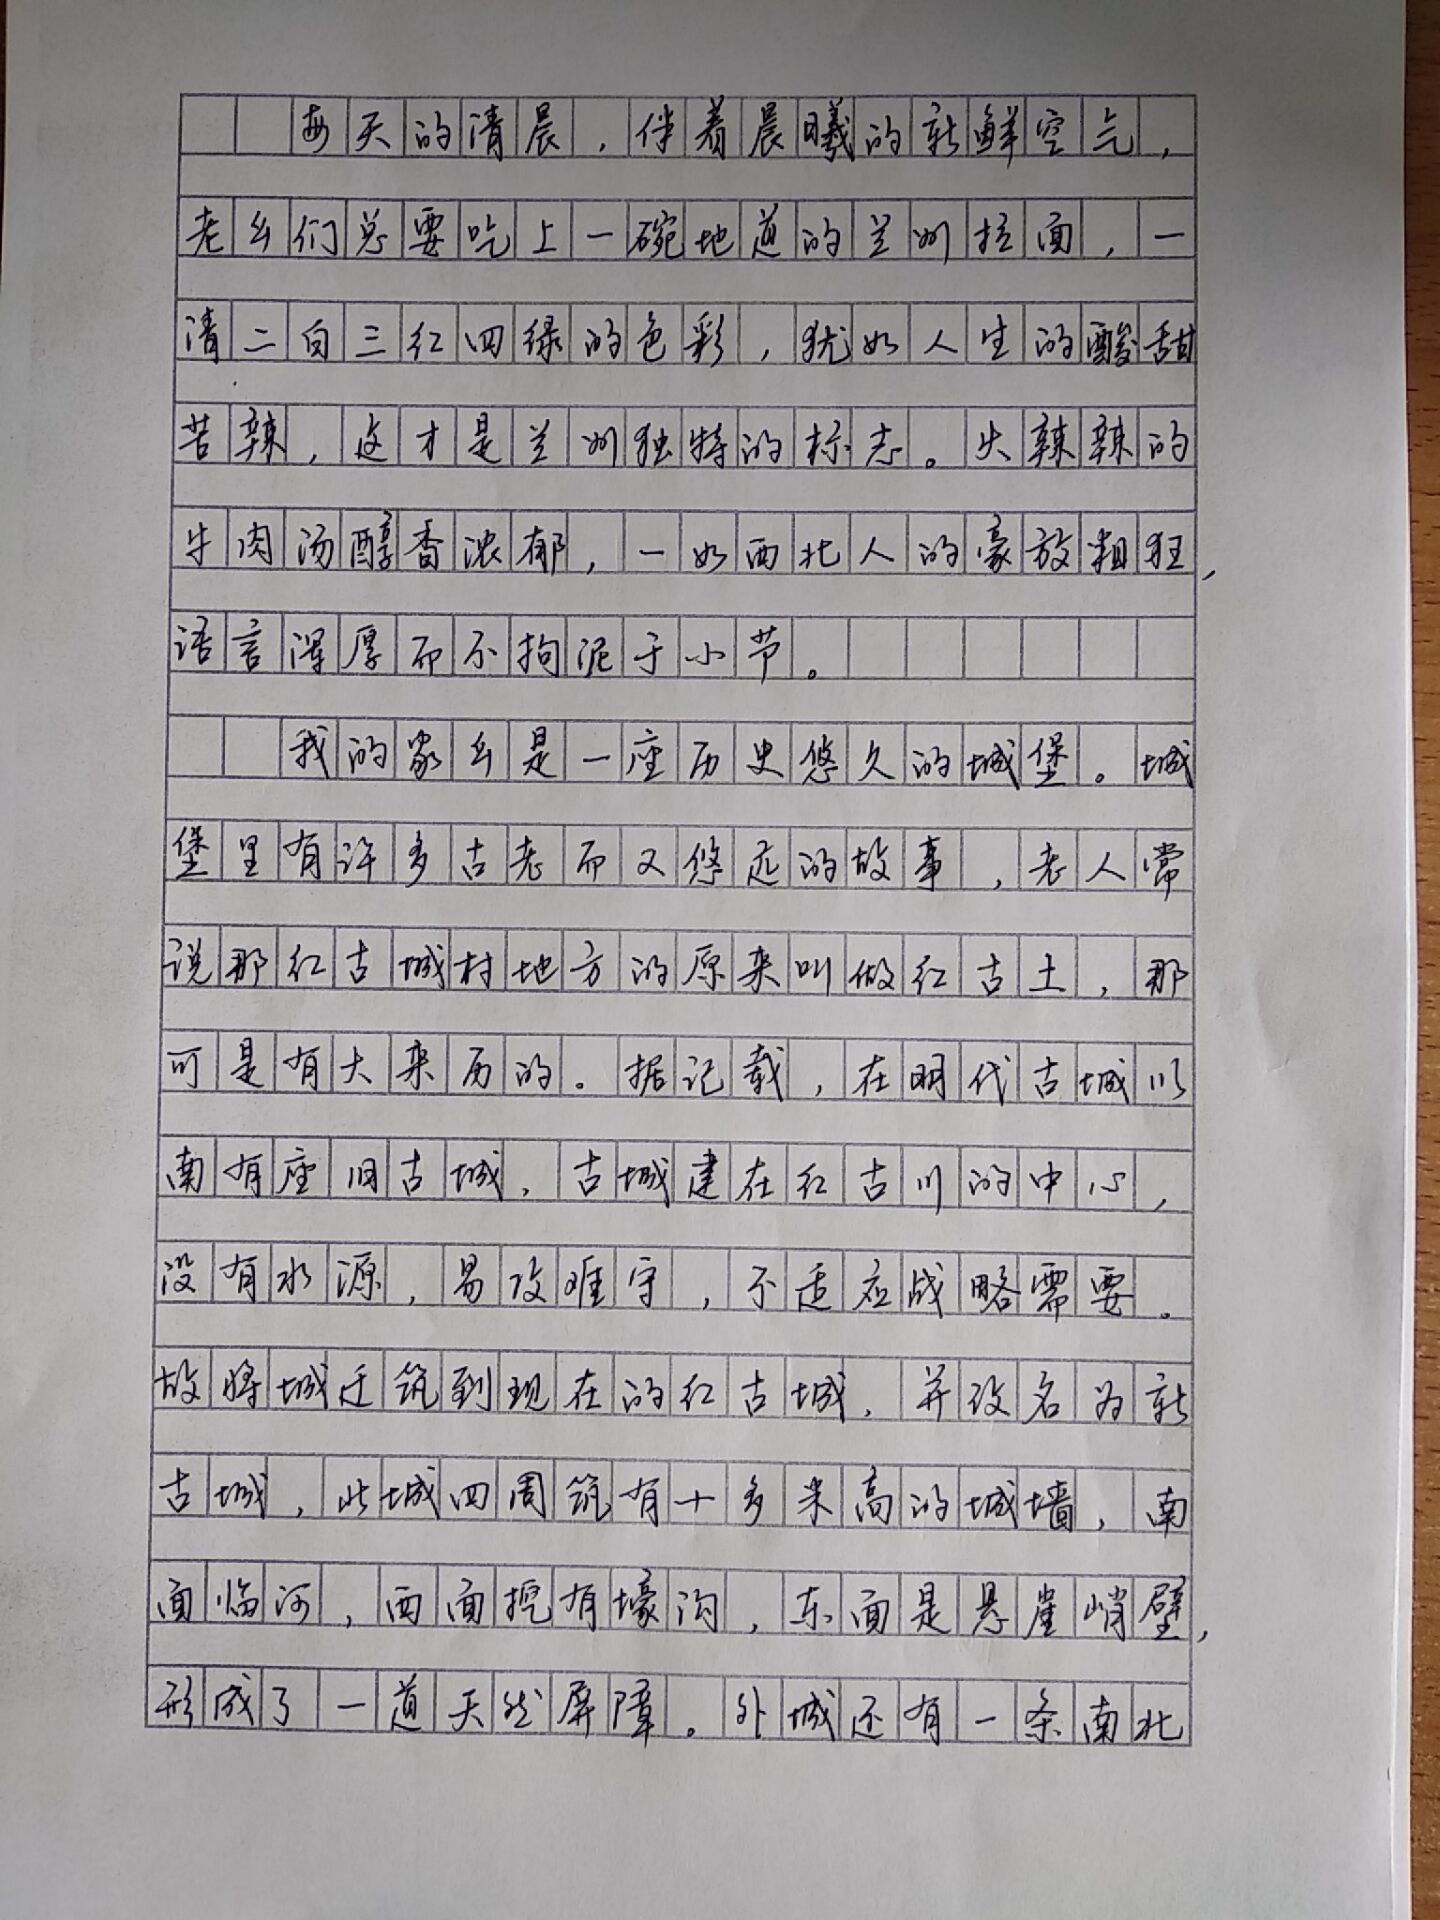 每天的清晨，伴着晨曦的新鲜空气，
老乡们总要吃上一碗地道的兰州拉面，一
清二白三红四绿的色彩，犹如人生的酸甜
苦辣，这才是兰州独特的标志。火辣辣的
牛肉汤醇香浓郁，一如西北人的豪放粗狂，
语言浑厚而不拘泥于小节。
我的家乡是一座历史悠久的城堡。城
堡里有许多古老而又悠远的故事，老人常
说那红古城村地方的原来叫做红古土，那
可是有大来历的。据记载，在明代古城以
南有座旧古城，古城建在红古川的中心，
没有水源，易攻难守，不适应战略需要。
故将城迁筑到现在的红古城，并改名为新
古城，此城四周筑有十多米高的城墙，南
面临河，西面挖有壕沟，东面是悬崖峭壁，
形成了一道天然屏障。外城还有一条南北